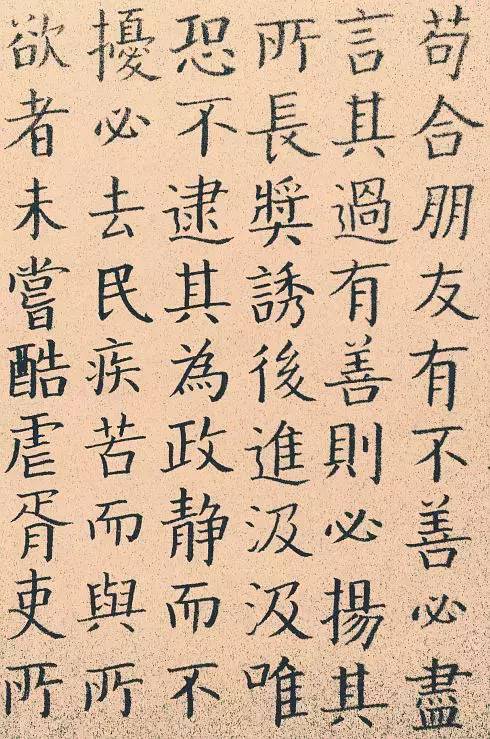 苟合朋友有不善必盡
言其過有善則必揚其
所長獎誘後進汲汲唯
恐不逮其為政静而不
擾必去民疾苦而與所
欲者未嘗酷虐胥吏所